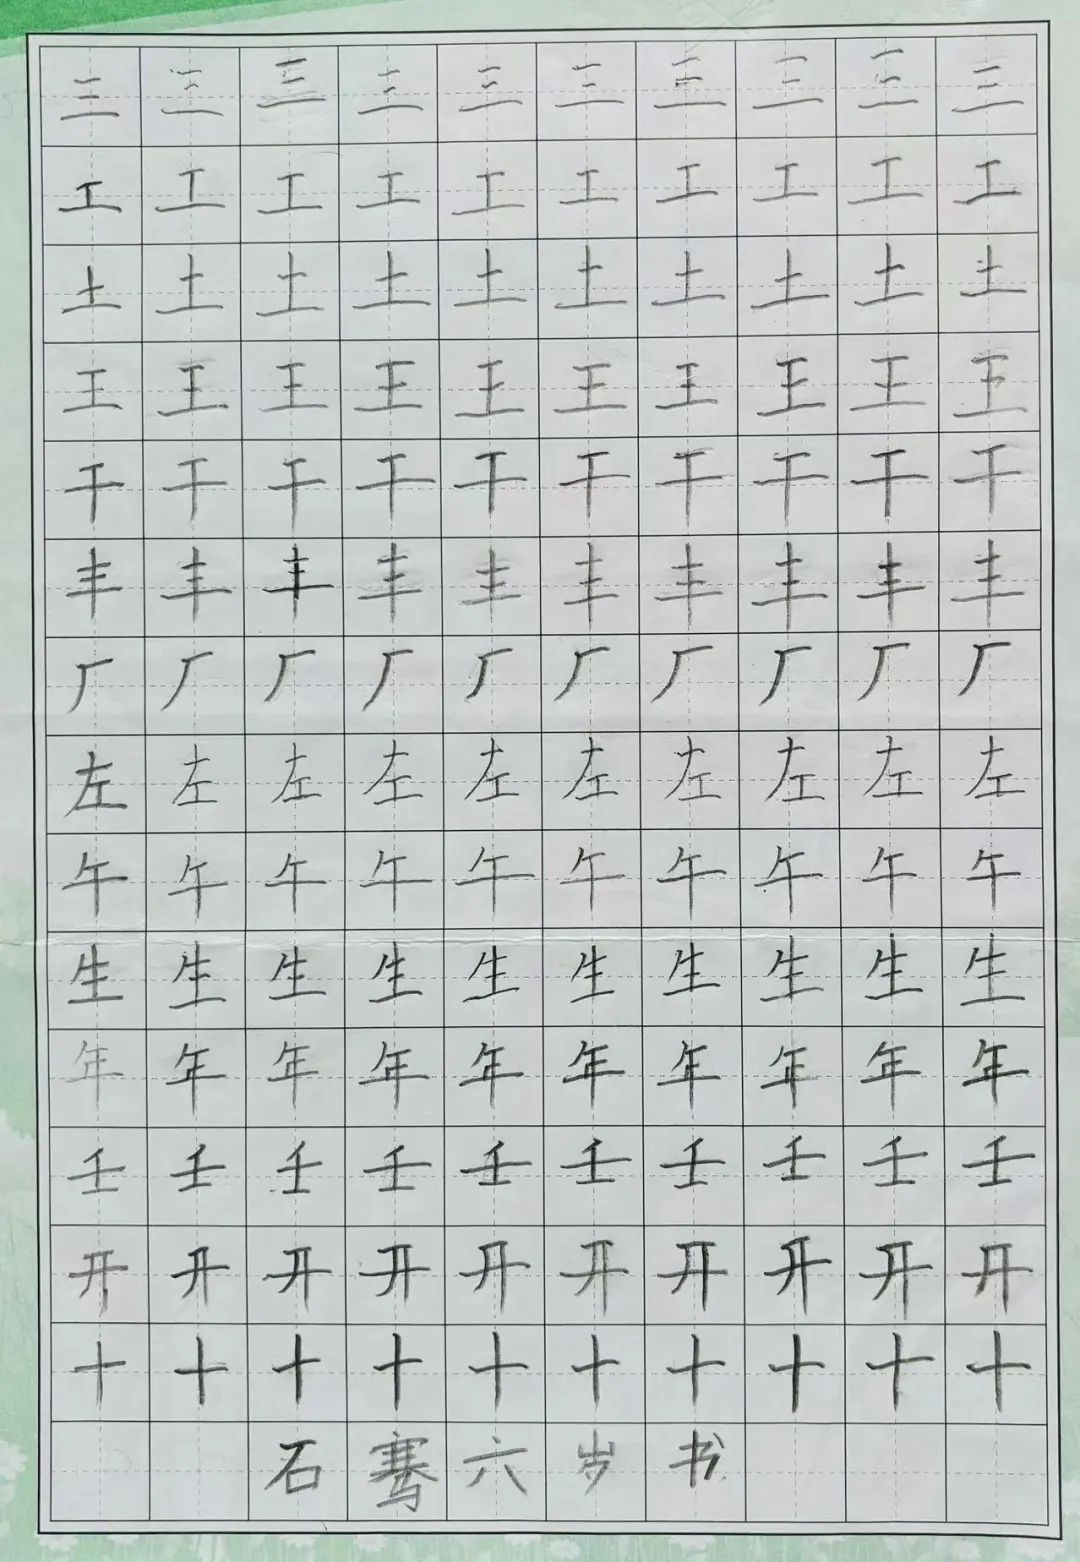 三三三三三三三三三三
工工工工工工工工工工
土土土土土土土土土土
王王王王王王王王王王
干干干干干干干干干干
丰丰丰丰丰丰丰丰丰丰
厂厂厂厂厂厂厂厂厂厂
左左左左左左左左左左
午午午午午午午午午午
生生生生生生生生生生
年年年年年年年年年年
壬壬壬壬壬壬壬壬壬壬
开开开开开开开开开开
十十十十十十十十十十
石骞六岁书